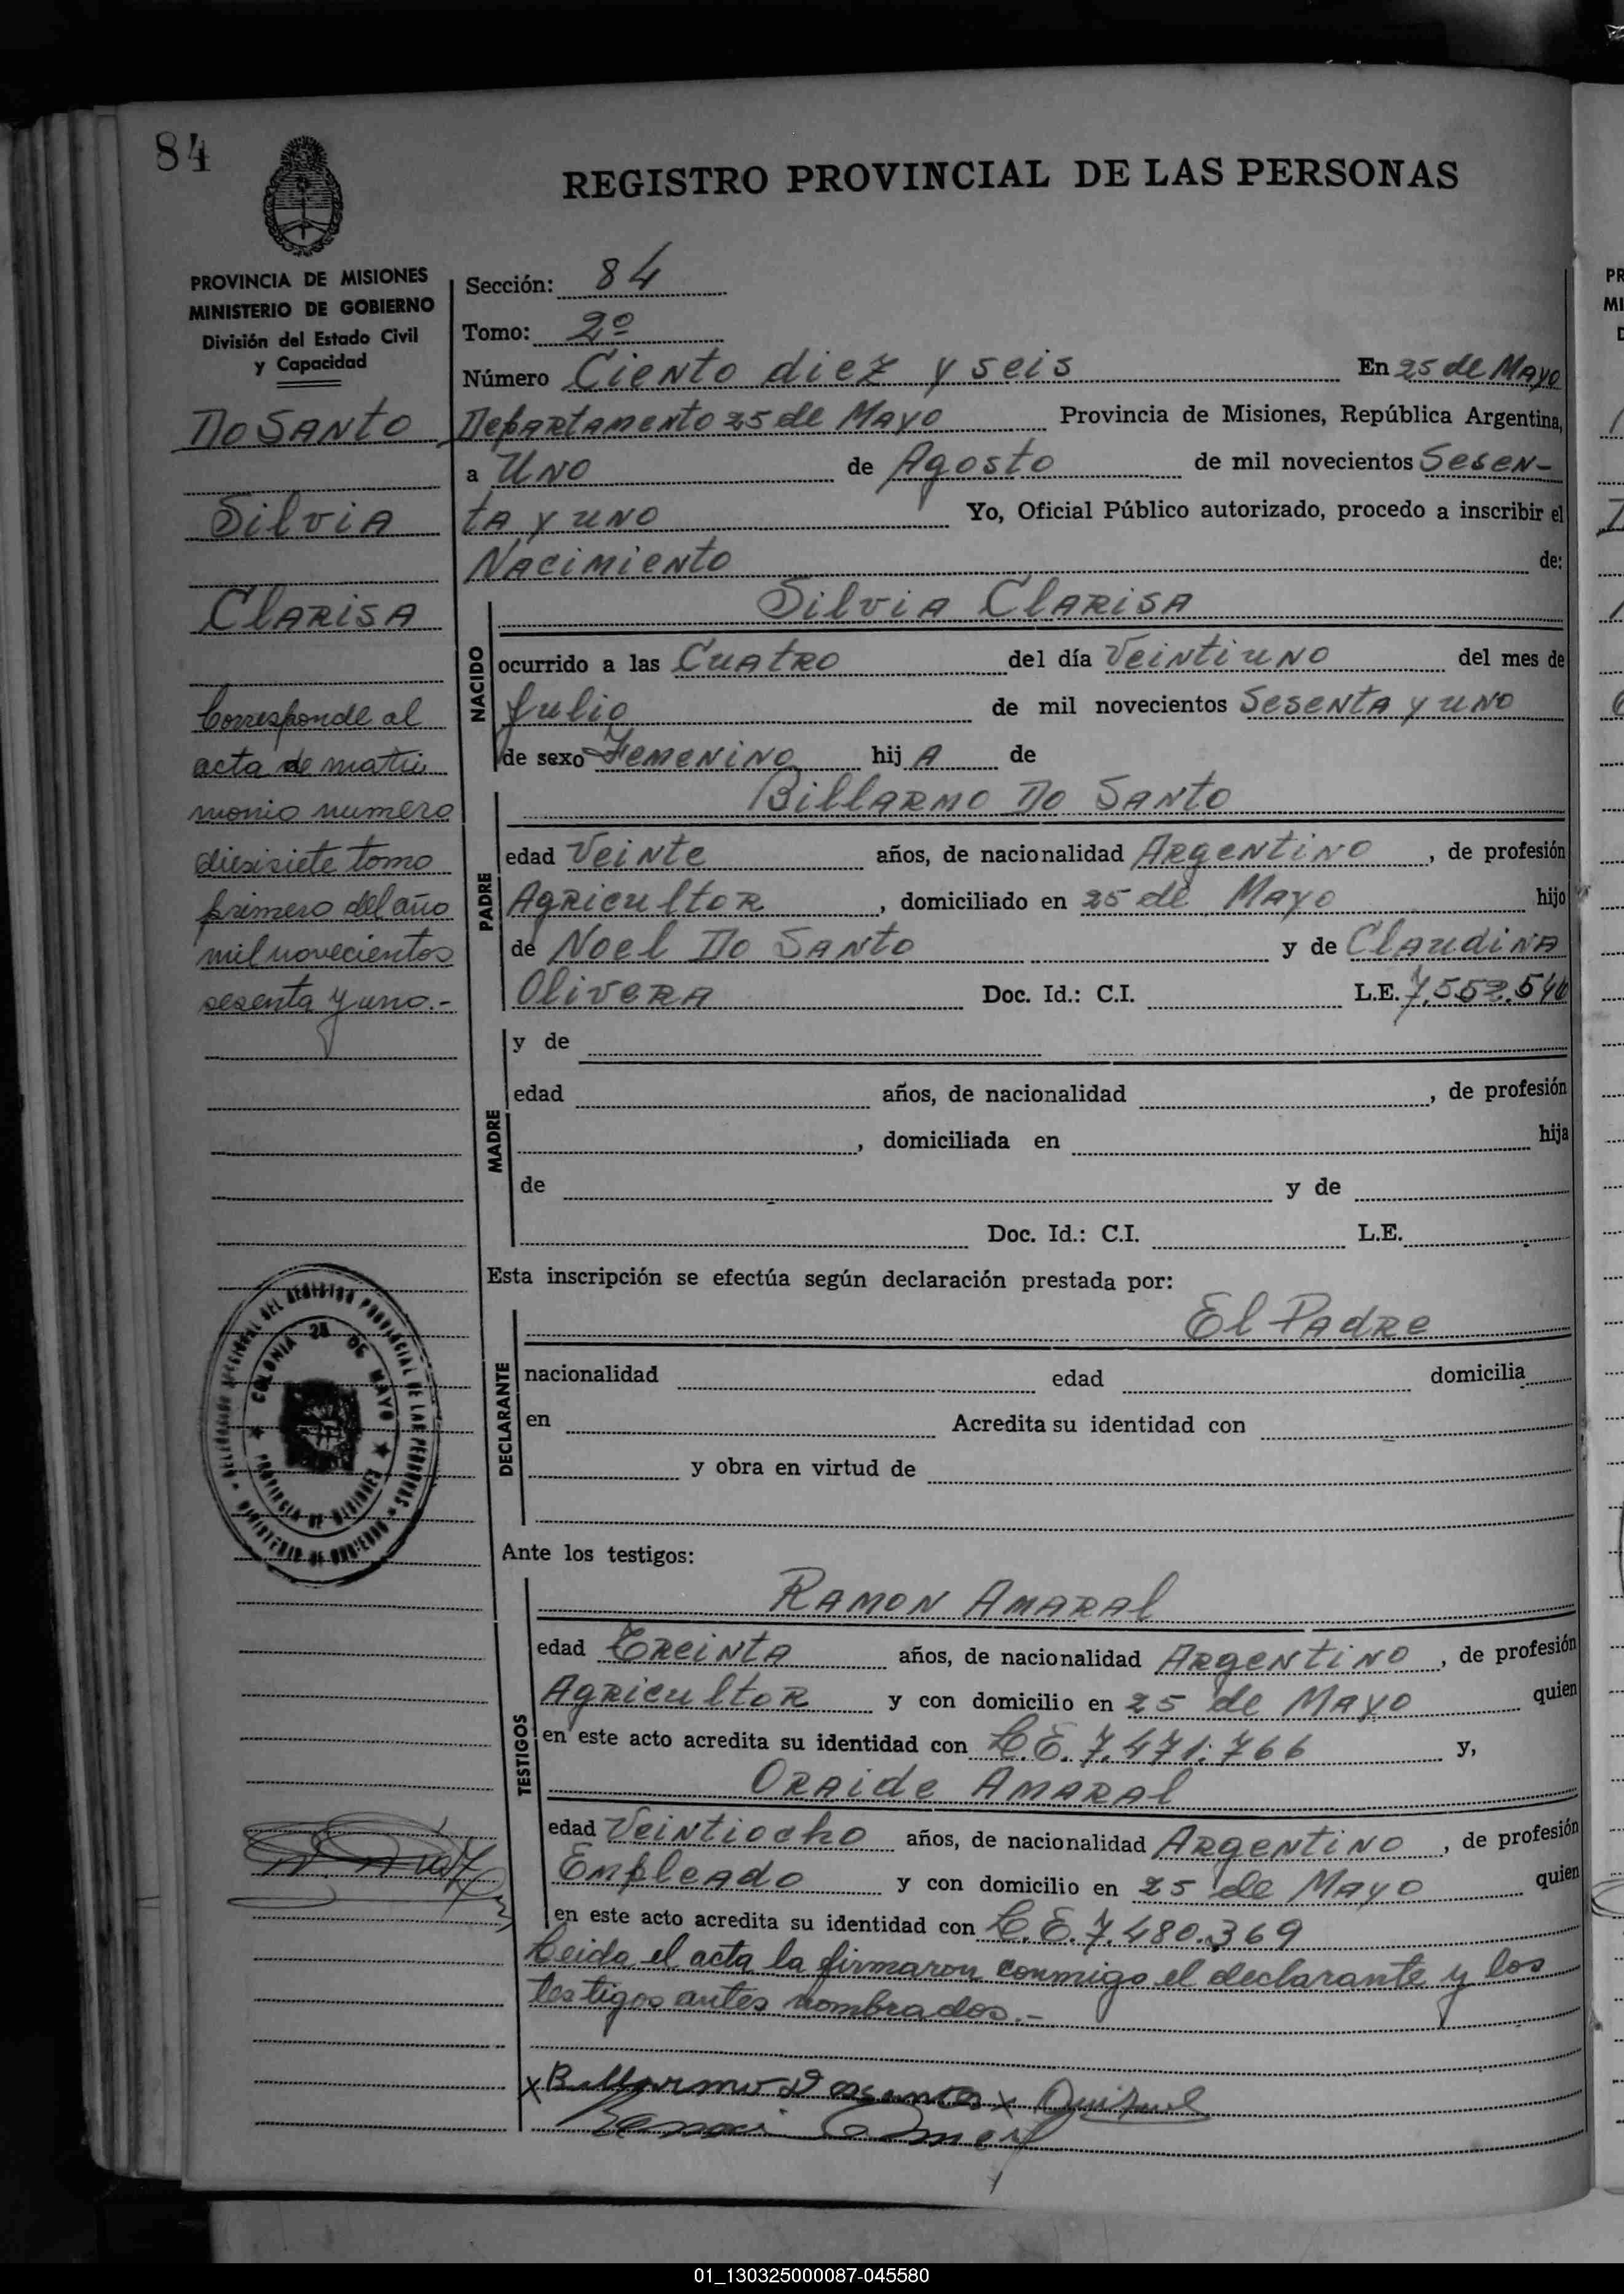 84
REGISTRO PROVINCIAL DE LAS PERSONAS
PROVINCIA DE MISIONES
MINISTERIO DE GOBIERNO
División del Estado Civil
y Capacidad
Do Santo
Silvia
Clarisa
Corresponde al
acta de matri
monio numero
diesisiete tomo
primero del año
mil novecientos
sesenta y uno.-
Sección: 84
Tomo: 2º
Número Ciento diez y seis En 25 de Mayo
Departamento 25 de Mayo Provincia de Misiones, República Argentina,
a Uno de Agosto de mil novecientos Sesen-
ta y uno Yo, Oficial Público autorizado, procedo a inscribir el
Nacimiento de:
NACIDO
Silvia Clarisa
ocurrido a las Cuatro del día Veintiuno del mes de
Julio de mil novecientos Sesenta y uno
de sexo Femenino hij A de
PADRE
Billarmo Do Santo
edad Veinte años, de nacionalidad Argentino, de profesión
Agricultor, domiciliado en 25 de Mayo hijo
de Noel Do Santo y de Claudina
Olivera Doc. Id.: C.I. L.E. 7.552.546
MADRE
y de
edad años, de nacionalidad , de profesión
, domiciliada en hija
de y de
Doc. Id.: C.I. L.E.
Esta inscripción se efectúa según declaración prestada por:
DECLARANTE
El Padre
nacionalidad edad domicilia
en Acredita su identidad con
y obra en virtud de
Ante los testigos:
TESTIGOS
Ramon Amaral
edad Treinta años, de nacionalidad Argentino, de profesión
Agricultor y con domicilio en 25 de Mayo quien
en este acto acredita su identidad con L.E. 7.471.766 y,
Oraide Amaral
edad Veintiocho años, de nacionalidad Argentino, de profesión
Empleado y con domicilio en 25 de Mayo quien
en este acto acredita su identidad con L.E. 7.480.369
Leida el acta la firmaron conmigo el declarante y los
testigos antes nombrados.-
COLONIA 25 DE MAYO
PROVINCIA DE MISIONES
REGISTRO PROVINCIAL DE LAS PERSONAS
MINISTERIO DE GOBIERNO
x Billarmo Dosantos x
01_130325000087-045580